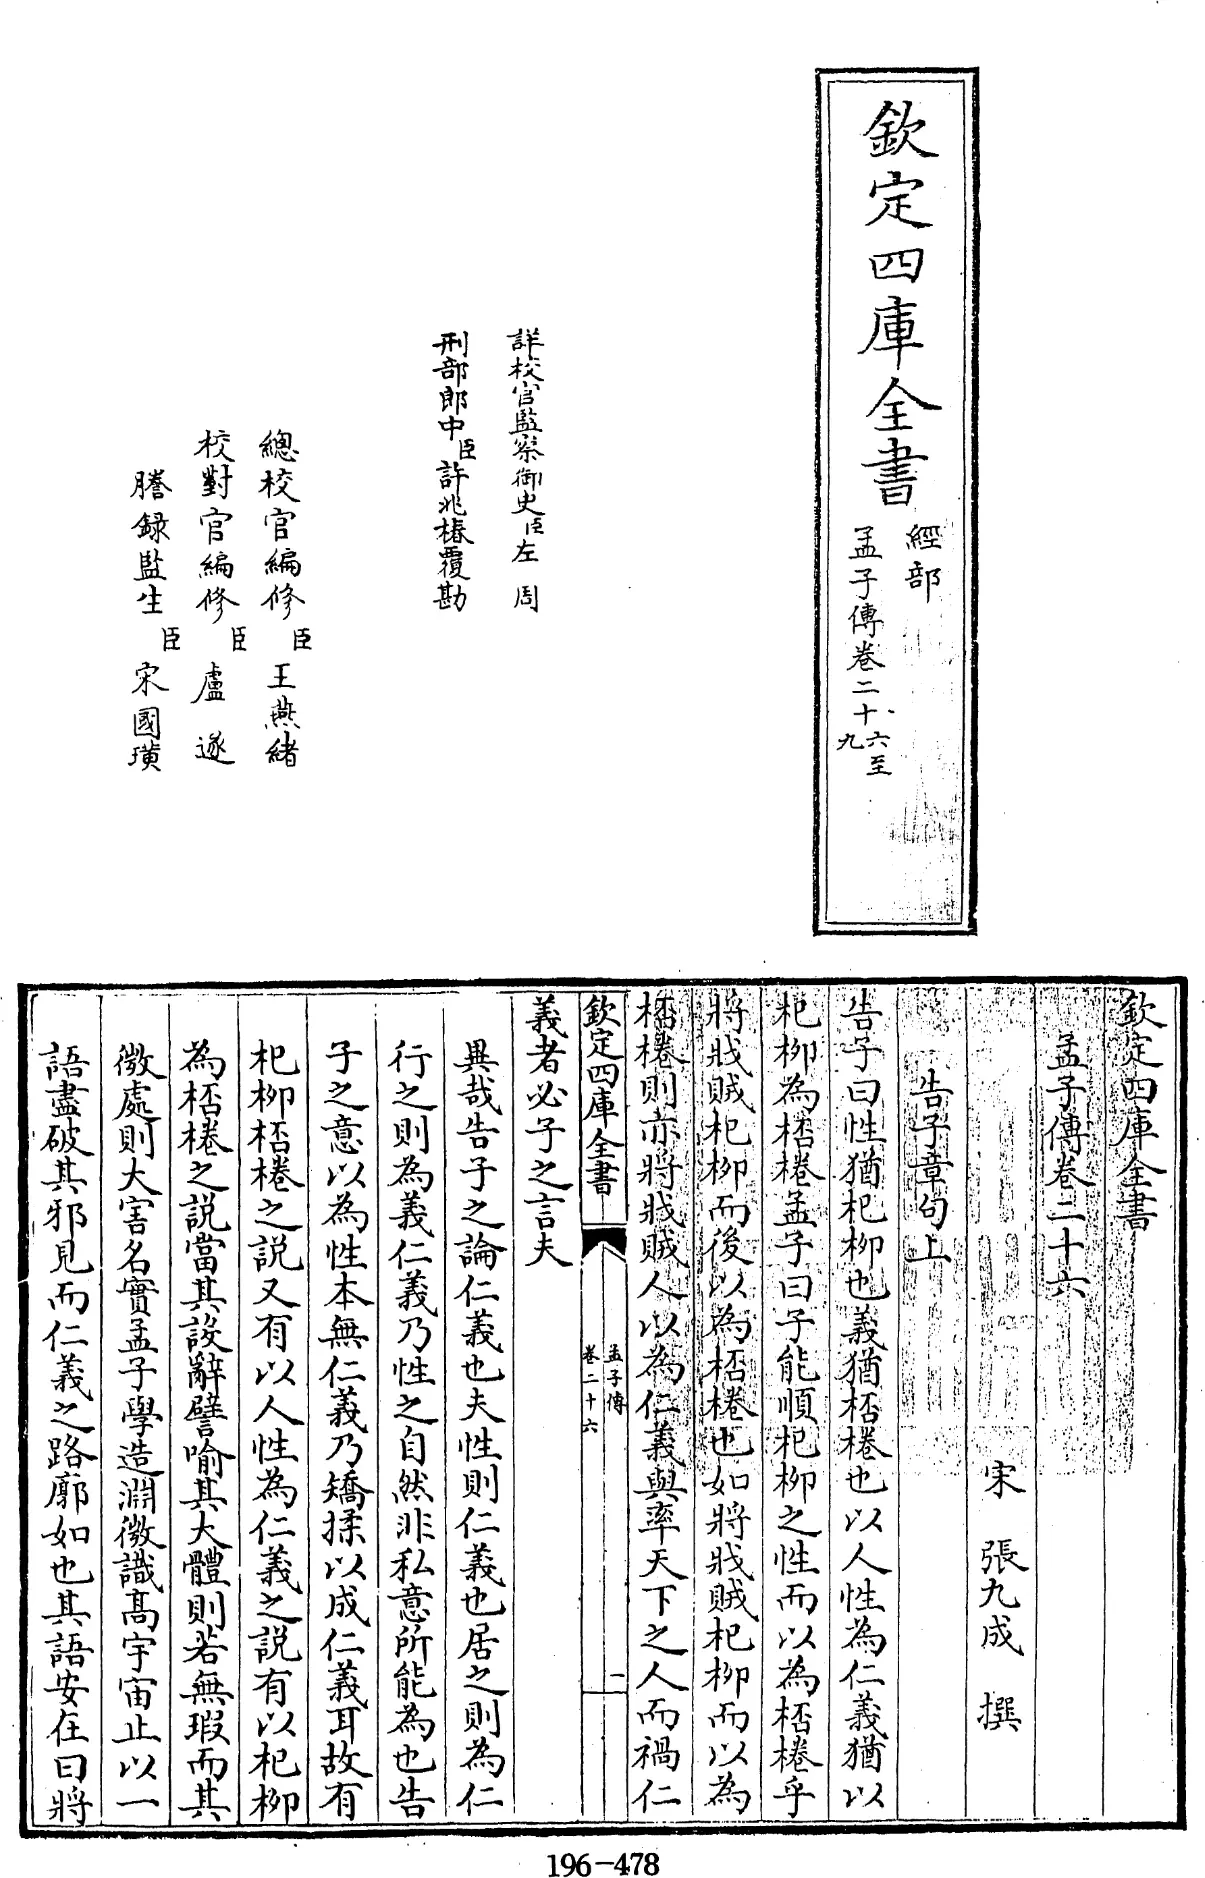 欽定四庫全書
經部
孟子傳卷二十六至九
詳校官監察御史臣左周
刑部郎中臣許兆椿覆勘
總校官編修臣王燕緒
校對官編修臣盧遂
謄錄監生臣宋國璜
欽定四庫全書
孟子傳卷二十六
宋 張九成 撰
告子章句上
告子曰性猶杞柳也義猶桮棬也以人性為仁義猶以
杞柳為桮棬孟子曰子能順杞柳之性而以為桮棬乎
將戕賊杞柳而後以為桮棬也如將戕賊杞柳而以為
桮棬則亦將戕賊人以為仁義與率天下之人而禍仁
欽定四庫全書
孟子傳
卷二十六
一
義者必子之言夫
異哉告子之論仁義也夫性則仁義也居之則為仁
行之則為義仁義乃性之自然非私意所能為也告
子之意以為性本無仁義乃矯揉以成仁義耳故有
杞柳桮棬之説又有以人性為仁義之説有以杞柳
為桮棬之説當其設辭譬喻其大體則若無瑕而其
微處則大害名實孟子學造淵微識髙宇宙止以一
語盡破其邪見而仁義之路廓如也其語安在曰將
196-478